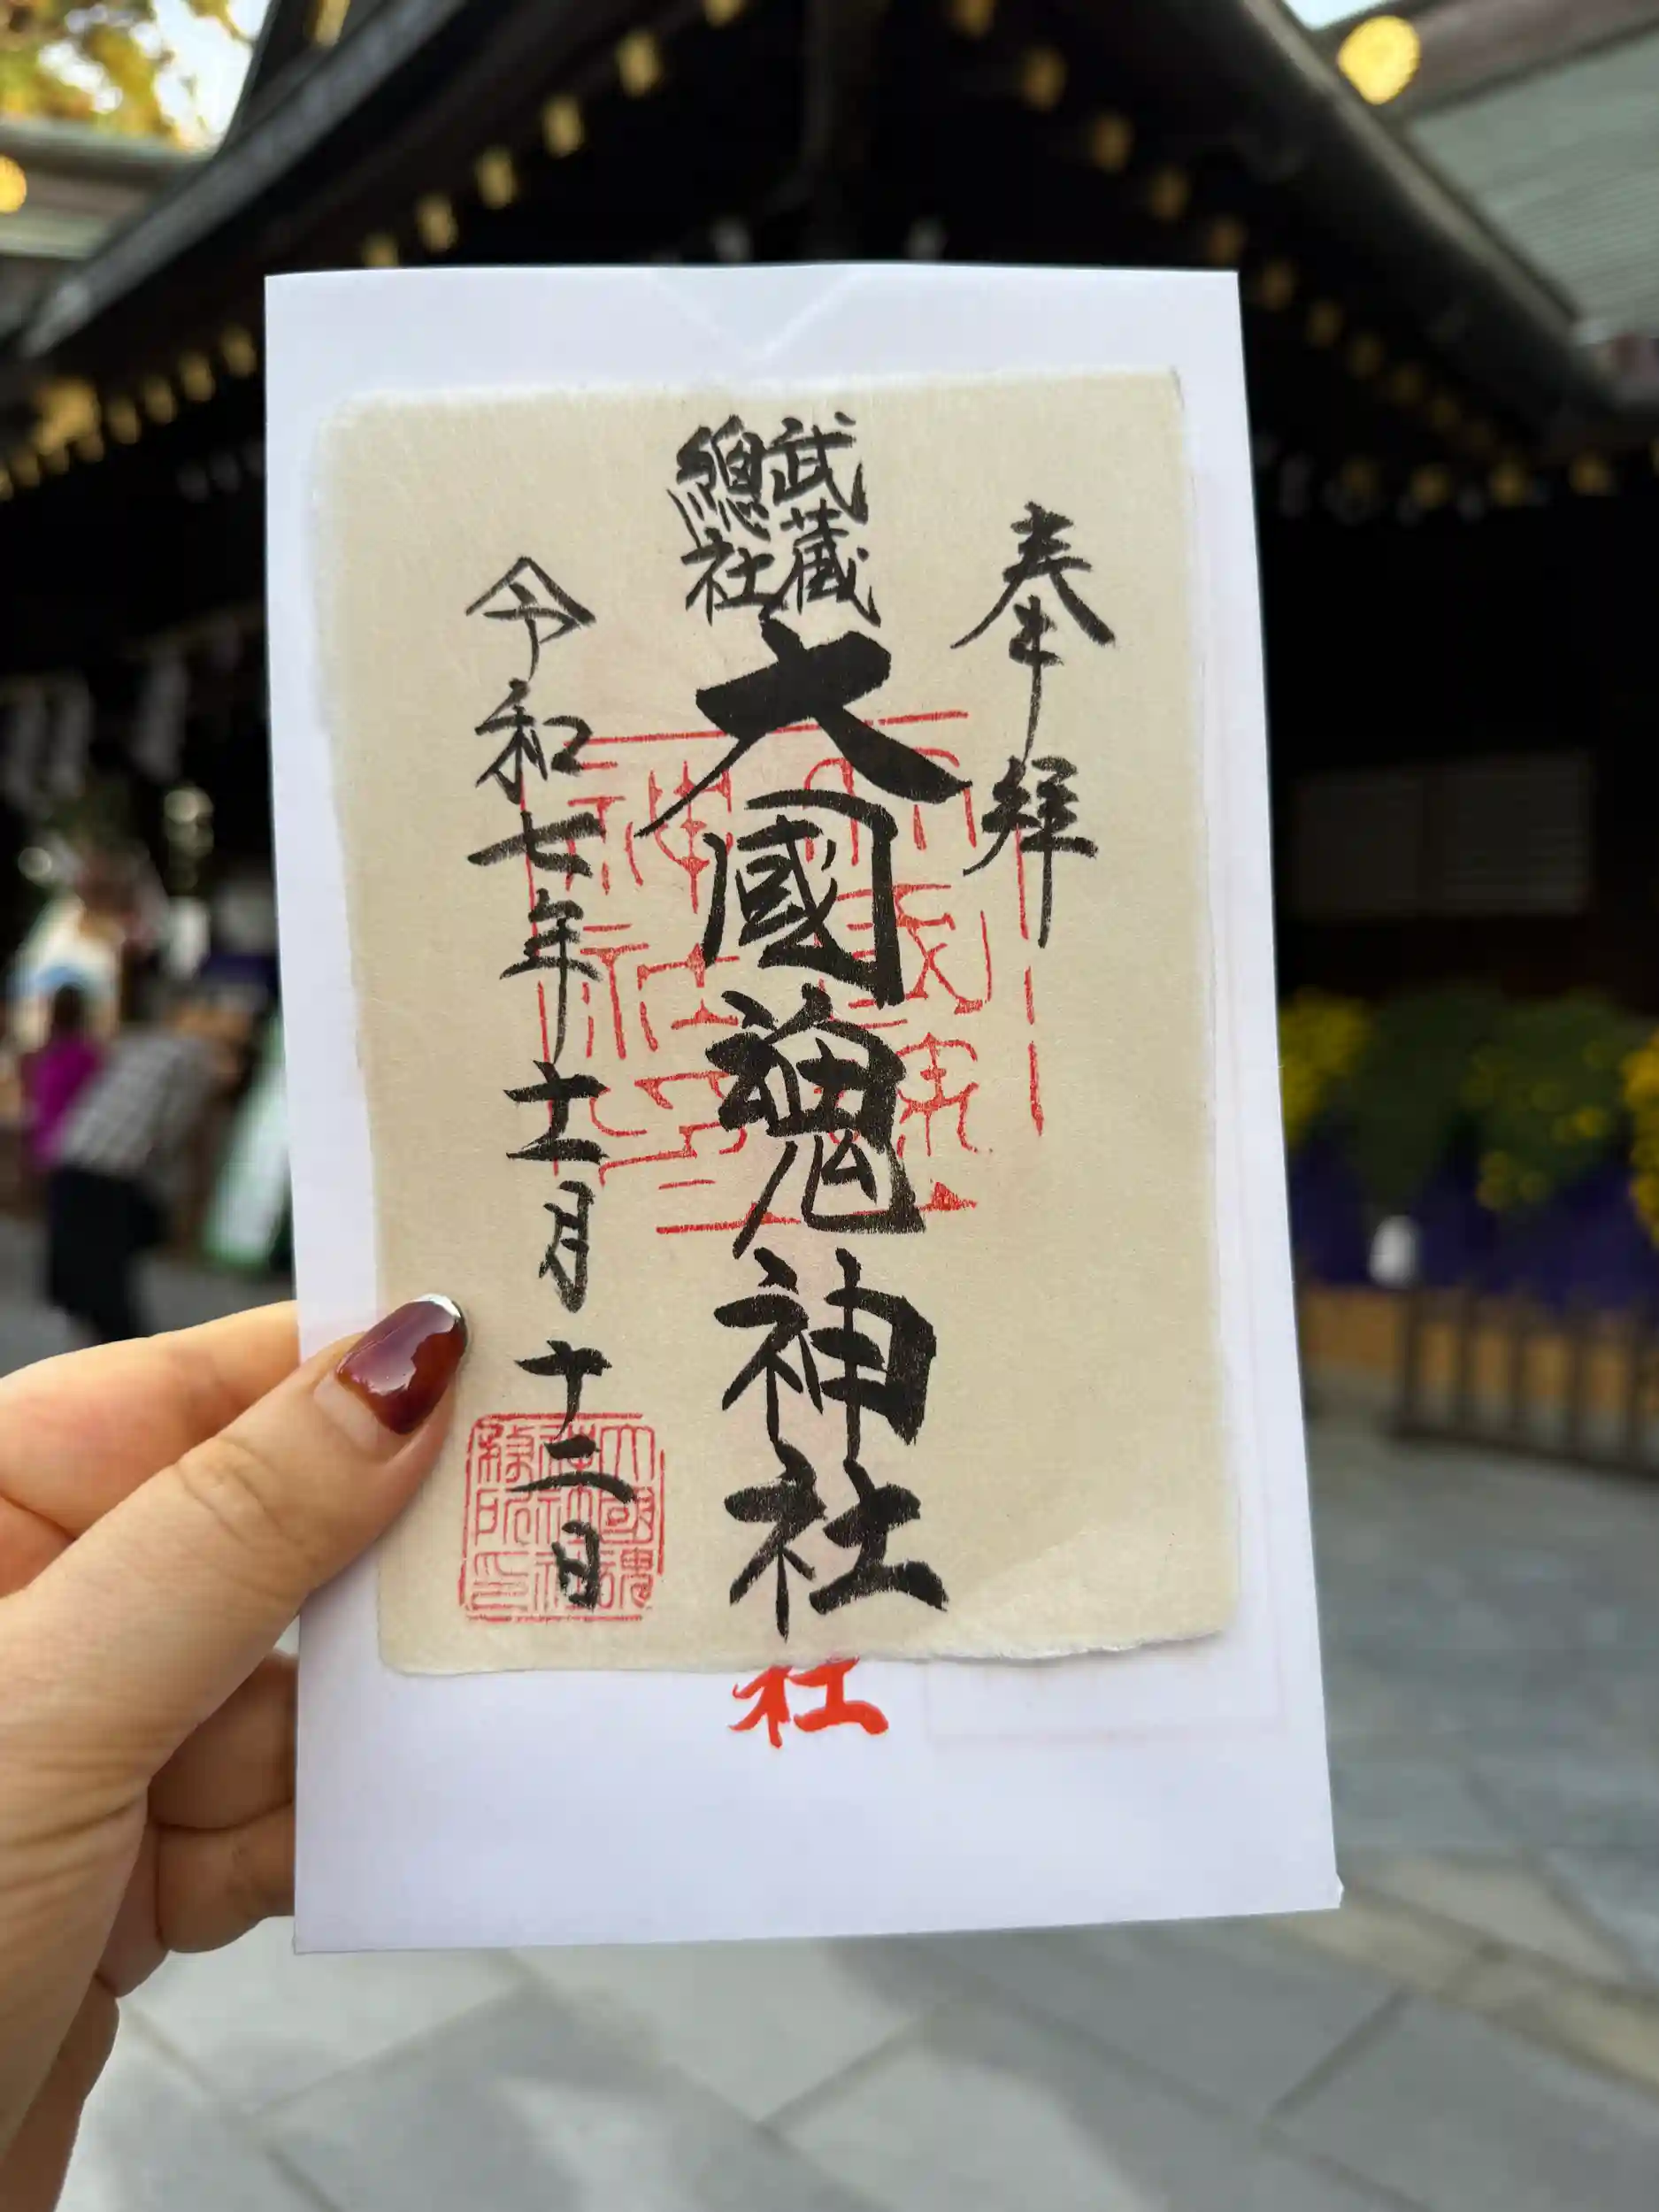 奉拝
武蔵
總社
大國魂神社
令和七年十一月十二日
大國魂
神社社
務所印
社